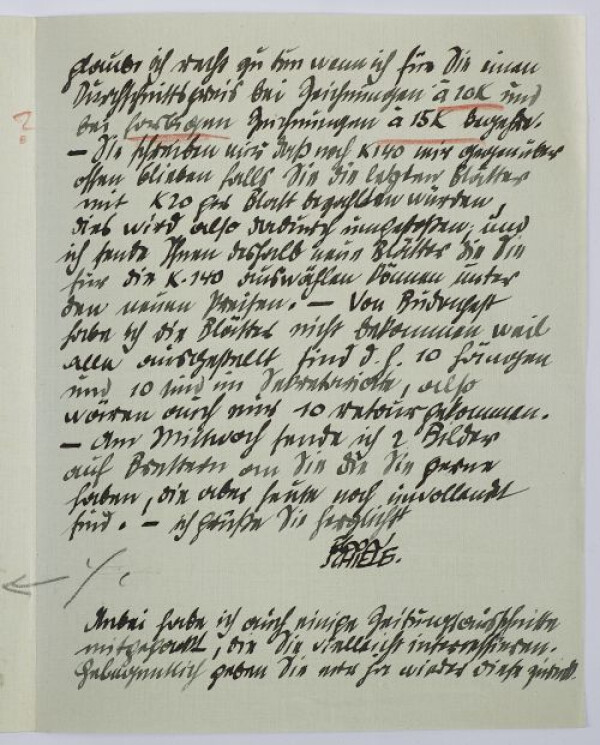 glaube ich recht zu tun wenn ich für Sie einen
Durchschnittspreis bei Zeichnungen à 10K und
bei farbigen Zeichnungen à 15K begehre.
– Sie schreiben mir daß noch K140 mir gegenüber
offen blieben falls Sie die letzten Blätter
mit K20 pro Blatt bezahlten würden,
dies wird also dadurch umgestoßen; und
ich sende Ihnen deshalb neue Blätter die Sie
für die K.140 auswählen können unter
den neuen Preisen. – Von Budapest
habe ich die Blätter nicht bekommen weil
alle ausgestellt sind d.h. 10 hängen
und 10 sind im Sekretariate, also
wären auch nur 10 retourgekommen.
– Am Mittwoch sende ich 2 Bilder
auf Brettern an Sie die Sie gerne
haben, die aber heute noch unvollendet
sind. – ich grüße Sie herzlichst
EGON
SCHIELE.
Anbei habe ich auch einige Zeitungsausschnitte
mitgepackt, die Sie vielleicht interessieren.
Gelegentlich geben Sie mir ja wieder diese zurück.
?